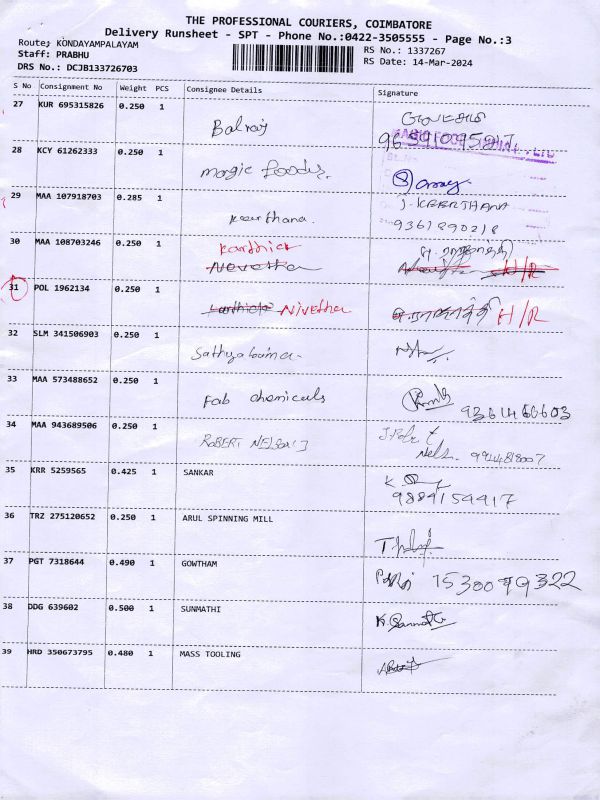 THE PROFESSIONAL COURIERS, COIMBATORE
Delivery Runsheet - SPT - Phone No.:0422-3505555 - Page No.:3
Route: KONDAYAMPALAYAM
Staff: PRABHU
DRS No.: DCJB133726703
RS No.: 1337267
RS Date: 14-Mar-2024
S No Consignment No Weight PCS Consignee Details Signature
27 KUR 695315826 0.250 1
Balraj
28 KCY 61262333 0.250 1
Magic foods.
29 MAA 107918703 0.285 1 J. KEERTHANA
Keerthana. 9361890218
30 MAA 108703246 0.250 1
Karthick
Nevetha H/R
31 POL 1962134 0.250 1
Karthick Nivetha H/R
32 SLM 341506903 0.250 1
Sathyabama
33 MAA 573488652 0.250 1
Fab chemicals
34 MAA 943689506 0.250 1
ROBERT NELSON J J. Robert
Nels. 9914818007
35 KRR 5259565 0.425 1 SANKAR
9884159417
36 TRZ 275120652 0.250 1 ARUL SPINNING MILL
37 PGT 7318644 0.490 1 GOWTHAM
38 DDG 639602 0.500 1 SUNMATHI
39 HRD 350673795 0.480 1 MASS TOOLING